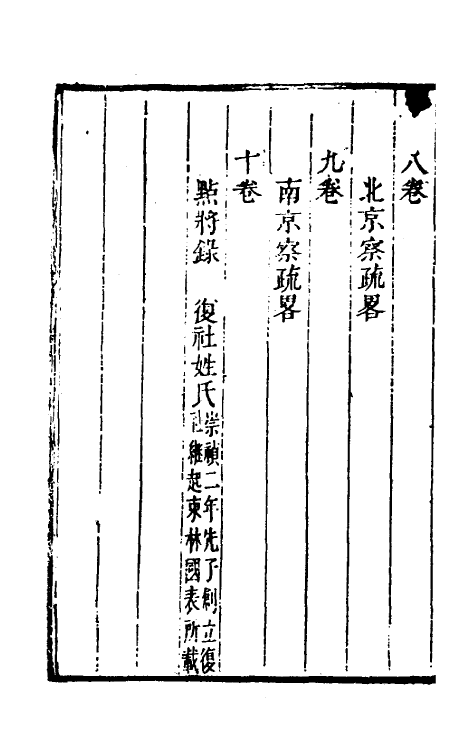 八卷
北京察疏畧
九卷
南京察疏畧
十卷
點將錄　復社姓氏崇禎二年先子創立復
社繼起東林國表所載